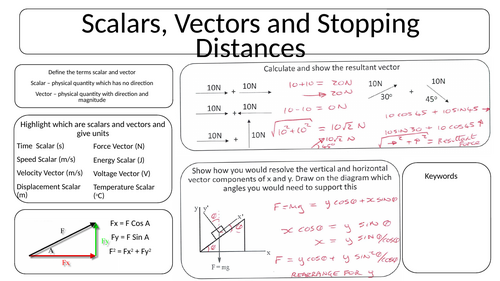 Scalars, Vectors and Stopping
Distances
Define the terms scalar and vector
Scalar – physical quantity which has no direction
Vector – physical quantity with direction and
magnitude
Highlight which are scalars and vectors and
give units
Time Scalar (s)
Force Vector (N)
Speed Scalar (m/s)
Energy Scalar (J)
Velocity Vector (m/s)
Voltage Vector (V)
Displacement Scalar
(m)
Temperature Scalar
(°C)
F
A
Fx
Fy
Fx = F Cos A
Fy = F Sin A
F² = Fx² + Fy²
Calculate and show the resultant vector
10N + 10N
10+10 = 20N
20N
10N + 10N
10-10 = 0N
10N + 10N
√10²+10² = 10√2 N
10√2 N
45°
10N
30°
+
10N
45°
10 cos 45 + 10 sin 45
10 sin 30 + 10 cos 45
= Resultant
force
Show how you would resolve the vertical and horizontal
vector components of x and y. Draw on the diagram which
angles you would need to support this
y
y'
x'
x
θ
F = mg
F=mg = y cos θ + x sin θ
x cos θ = y sin θ
x = y sin θ/cos θ
F = y cos θ + y sin²θ/cos θ
REARRANGE FOR y
Keywords